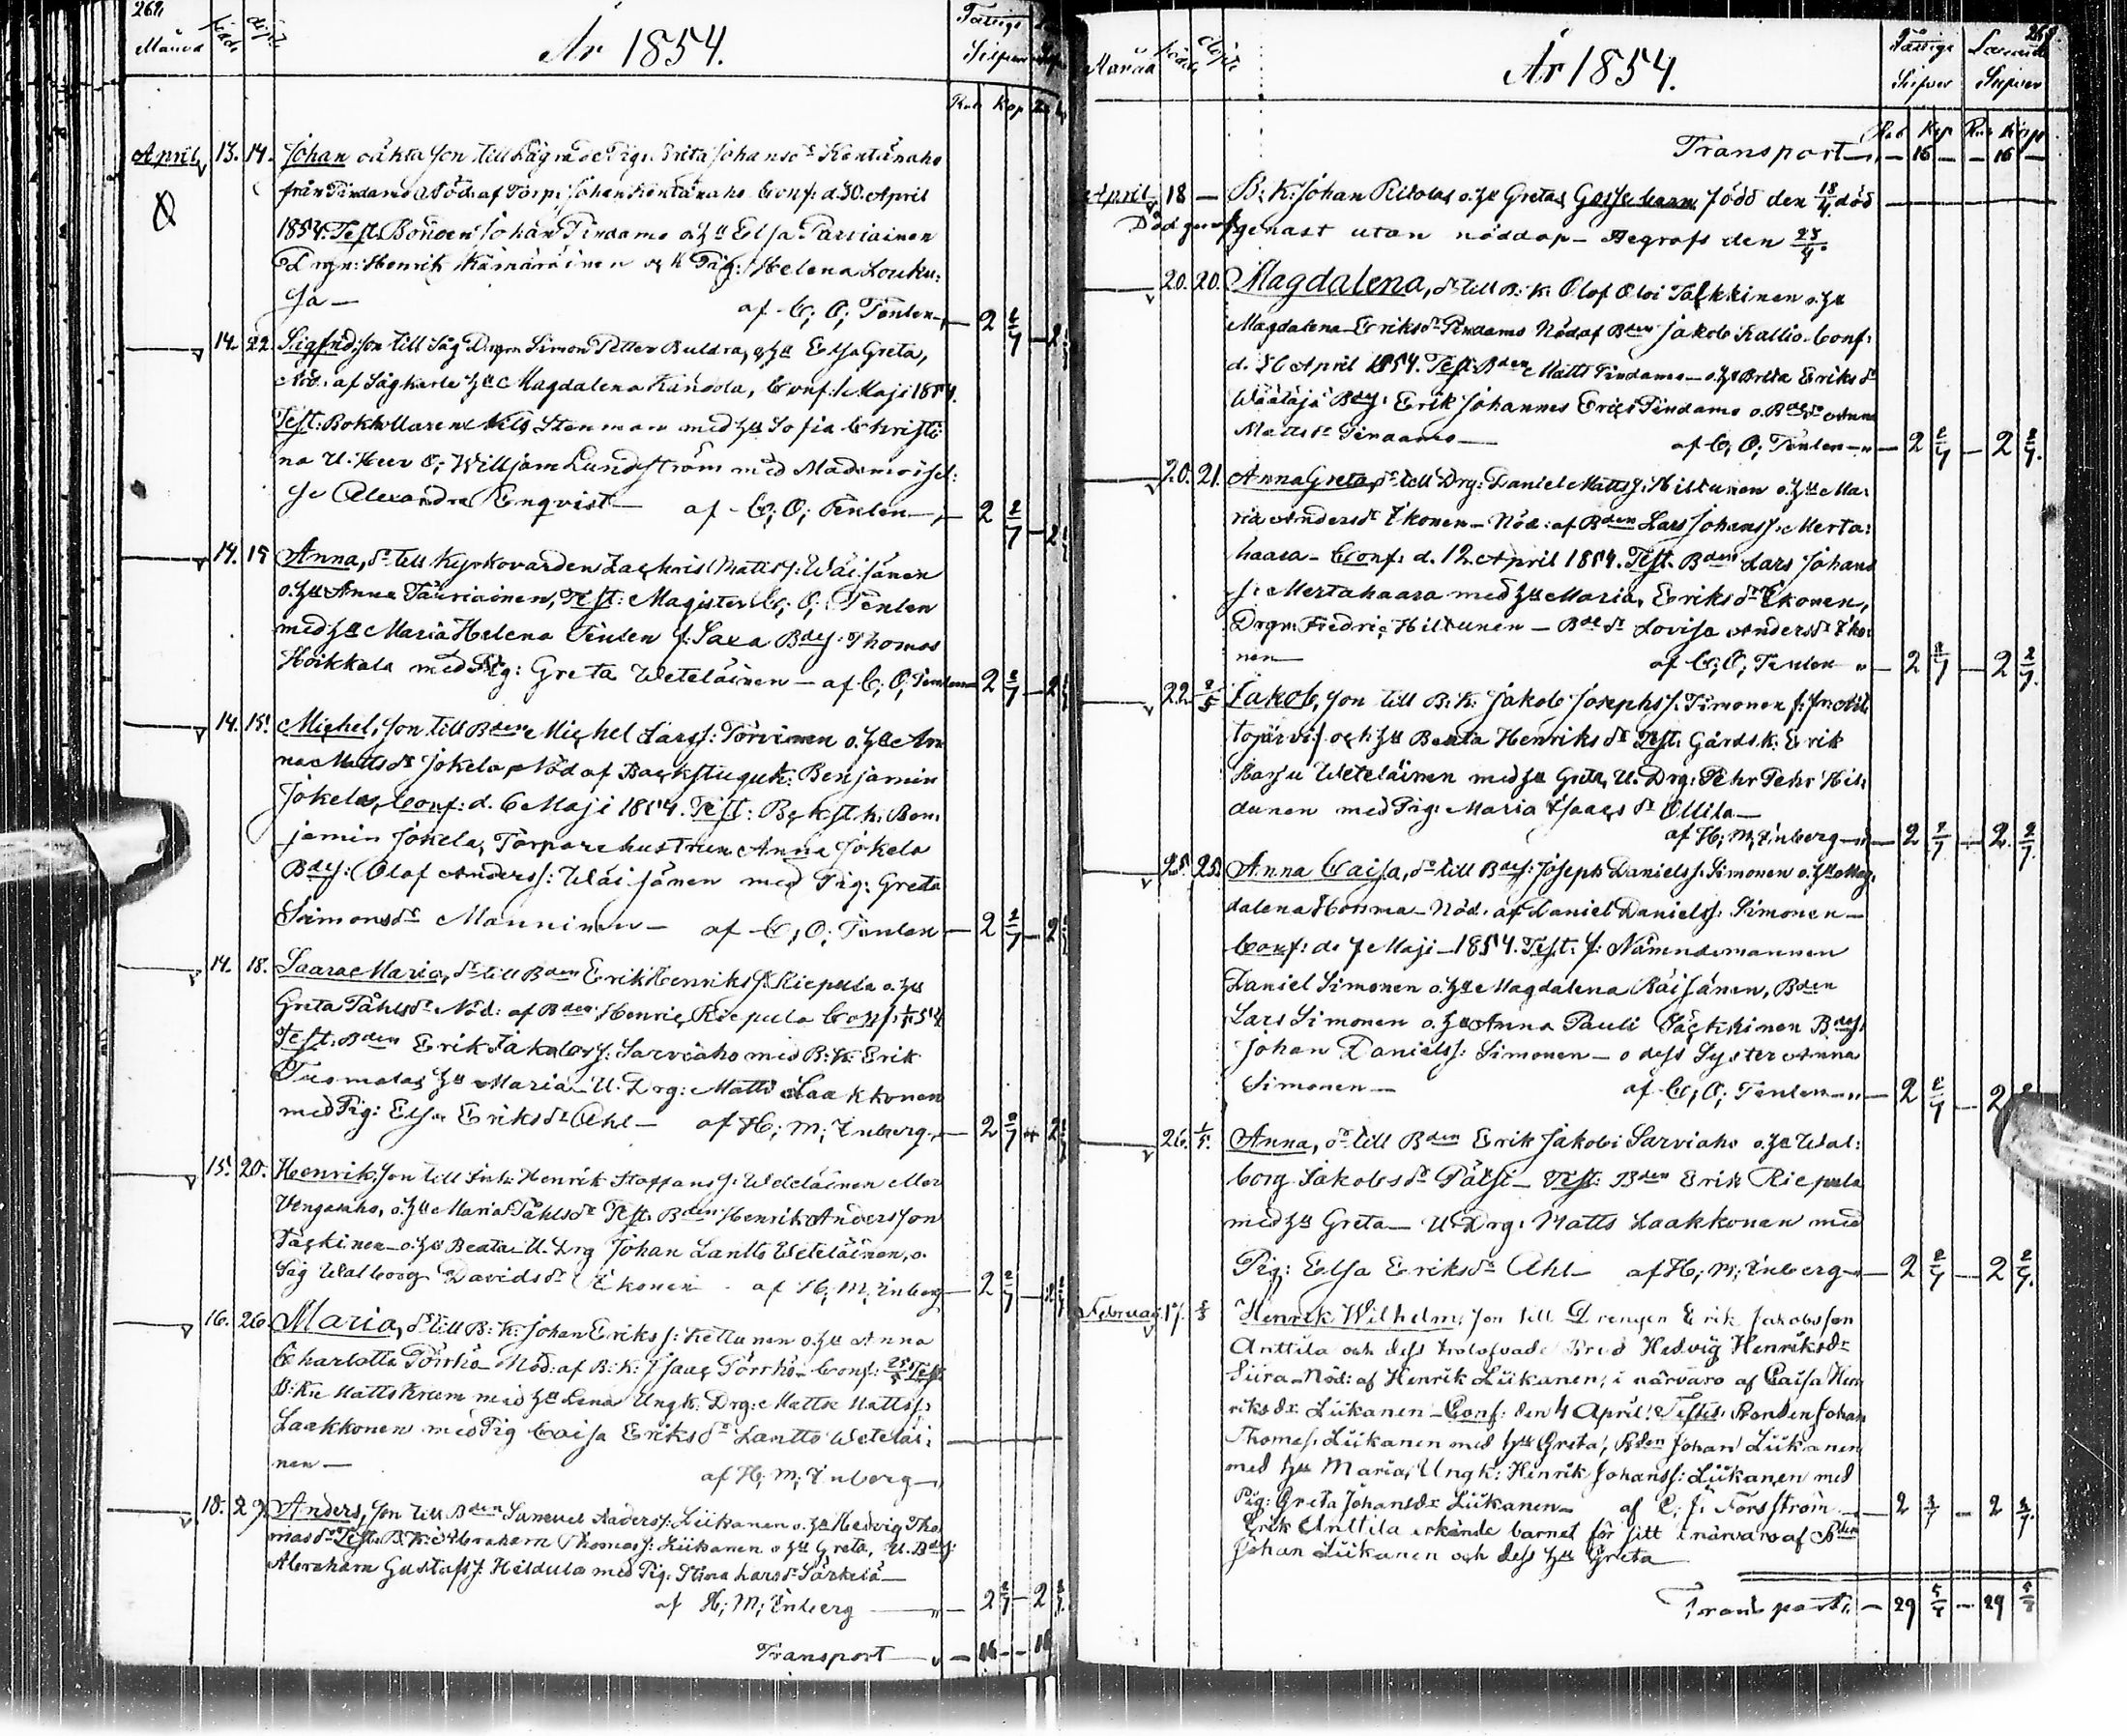 262.
Månad född döpt
År 1854.
Fattige Silfver
Rub Kop
April 13. 14. Johan oäkta son till Lägrade Pig: Brita Johansdr Kontänaho
från Pirdamo Nöd: af Torp: Johan Kontänaho Conf: d. 30. April
1854. Test: Bonden Johan Pirdamo o. hu Elsa Parviainen
Drgn: Henrik Kämäräinen och Pig: Helena Louku:
sa — af C; O; Tenlen — 2 2/7 — 2
14. 22. Sigfrid, son till Säg Drgn Simon Petter Buldra, o. hu Elsa Greta,
Nöd: af Sågkarls hu Magdalena Kandola, Conf: Maji 1854.
Test: Bokhållaren Nils Stenman med hu Sofia Christi
na U. Herr O; Willjam Lundström med Mademoisel:
le Alexandra Enqvist — af C; O; Tenlen — 2 2/7 — 2
14. 15 Anna, dr till Kyrkovärden Zachris Mattss: Wäisänen
o. hu Anna Tauriainen, Test: Magister C; O; Tenlen
med hu Maria Helena Tenlen f: Saxa Bdes: Thomas
Hoikkala med Pig: Greta Weteläinen — af C; O; Tenlen — 2 2/7 — 2
14. 15. Michel, son till Bden Michel Larss: Törvinen o. hu An
na Mattsdr Jokela, Nöd af Backstuguk: Benjamin
Jokela, Conf: d. 6 Maji 1854. Test: Bckst. k: Ben:
jamin Jokela, Torpare hustrun Anna Jokela
Bdes: Olof Anderss: Wäisänen med Pig: Greta
Simonsdr Manninen — af C; O; Tenlen — 2 2/7 — 2
14. 18. Saara Maria, dr till Bden Erik Henrikss: Riepula o. hu
Greta Påhlsdr Nöd: af Bden Henric Riepula Conf:
Test: Bden Erik Jakobss: Sarviaho med B: K: Erik
Tuomalas hu Maria U. Drg: Matts Laakkonen
med Pig: Elsa Eriksdr Ahl — af H; M; Enberg — 2 2/7 — 2
15. 20. Henrik, son till Inh: Henrik Staffanss: Weteläinen
Vengasaho, o. hu Maria Påhlsdr Test. Bden Henrik Andersson
Päckinen o. hu Beata U. Drg Johan Lantto Weteläinen, o.
Pig Walborg Davidsdr Ekonen af H; M; Enberg — 2 2/7
16. 26. Maria, dr till B: K: Johan Erikss: Kettunen o. hu Anna
Charlotta Pörrhö Nöd: af B: K: Isaac Pörrhö Conf: 25/5 Test
B: Kn Matts Kram med hu Lena Ungk: Drg: Matts Mattss:
Laakkonen med Pig Caisa Eriksdr Lantto Wetelai:
nen — af H; M; Enberg —
18. 29. Anders, son till Bden Samuel Anderss: Liikanen o. hu Hedvig Tho
masdr Test. B. K: Abraham Thomass: Liikanen o hu Greta, U. Bdes:
Abraham Gustafs: Heldula med Pig: Stina Larsdr Särkelä —
af H; M; Enberg — 2 2/7 — 2
Transport — 16 — 16
Månad född döpt
År 1854.
Fattige Silfver
Rub Kop Rub Kop
Transport — 16 — 16 —
April 18 — B: K: Johan Pillolas o. hu Gretas Gossebarn född den 18/4 död
Död genast utan nöddop — Begrafs den 23/4.
20. 20. Magdalena, dr till B: K: Olof Oloi Palkkinen o. hu
Magdalena Eriksdr Pirdamo Nöd af Bden Jakob Kallio Conf:
d. 30 April 1854. Test: Bden Matts Pirdamo — o. hu Brita Eriksd
Wäätäjä Bdes: Erik Johannes Erics Pirdamo o. Bdedr Anna
Mattsdr Pirdamo — af C; O; Tenlen — 2 2/7 — 2 2/7.
20. 21. Anna Greta, dr till Drg: Daniel Mattss: Hiltunen o. hu Ma:
ria Andersdr Ekonen — Nöd: af Bden Lars Johanss: Merta:
haara — Conf: d. 12 April 1854. Test. Bden Lars Johans
s: Mertahaara med hu Maria, Eriksdr Ekonen,
Drgn: Fredric Hiltunen — Bdedr Lovisa Andersdr Eko:
nen af C; O; Tenlen — 2 2/7 — 2 2/7.
22. 2/5 Jakob, son till B: K: Jakob Josephs: Simonen
och hu Beata Henriksdr Test: Gårds. k: Erik
Weteläinen med hu Greta, U. Drg: Pehr Pehr Hil:
dunen med Pig: Maria Isaacsdr Ollila —
af H; M; Enberg — 2 2/7 — 2. 2/7.
25. 25. Anna Caisa, dr till Bdes: Joseph Danielss. Simonen o. hu Mag:
dalena Honma — Nöd. af Daniel Danielss: Simonen —
Conf: d. 7 Maji — 1854. Test: f: Nämndemannen
Daniel Simonen o. hu Magdalena Räisänen, Bden
Lars Simonen o. hu Anna Pauli Päckkinen Bdes:
Johan Danielss: Simonen — o dess Syster Anna
Simonen — af C; O; Tenlen — 2 2/7 — 2
26. 1/5. Anna, dr till Bden Erik Jakobi Sarviaho o. hu Wal:
borg Jakobsdr Pätsi — Test: Bden Erik Riepula
med hu Greta — U Drg: Matts Laakkonen med
Pig: Elsa Eriksdr Ahl — af H; M; Enberg — 2 2/7 — 2 2/7.
Februari 17. Henrik Wilhelm, son till Drengen Erik Jakobsson
Anttila och dess trolofvade Brud Hedvig Henriksdr
Siira — Nöd: af Henrik Liikanen; i närvaro af Caisa Hen
riksdr Liikanen — Conf: den 4 April. Testes. Bonden Johan
Thomass. Liikanen med hu Greta, Bden Johan Liikanen
med hu Maria, Ungk: Henrik Johanss: Liikanen med
Pig: Greta Johansdr Liikanen — af C; J: Forsström — 2 2/7 — 2 2/7.
Erik Anttila erkände barnet för sitt i närvaro af Bden
Johan Liikanen och dess hu Greta —
Transport — 29 5/7 — 29 5/7